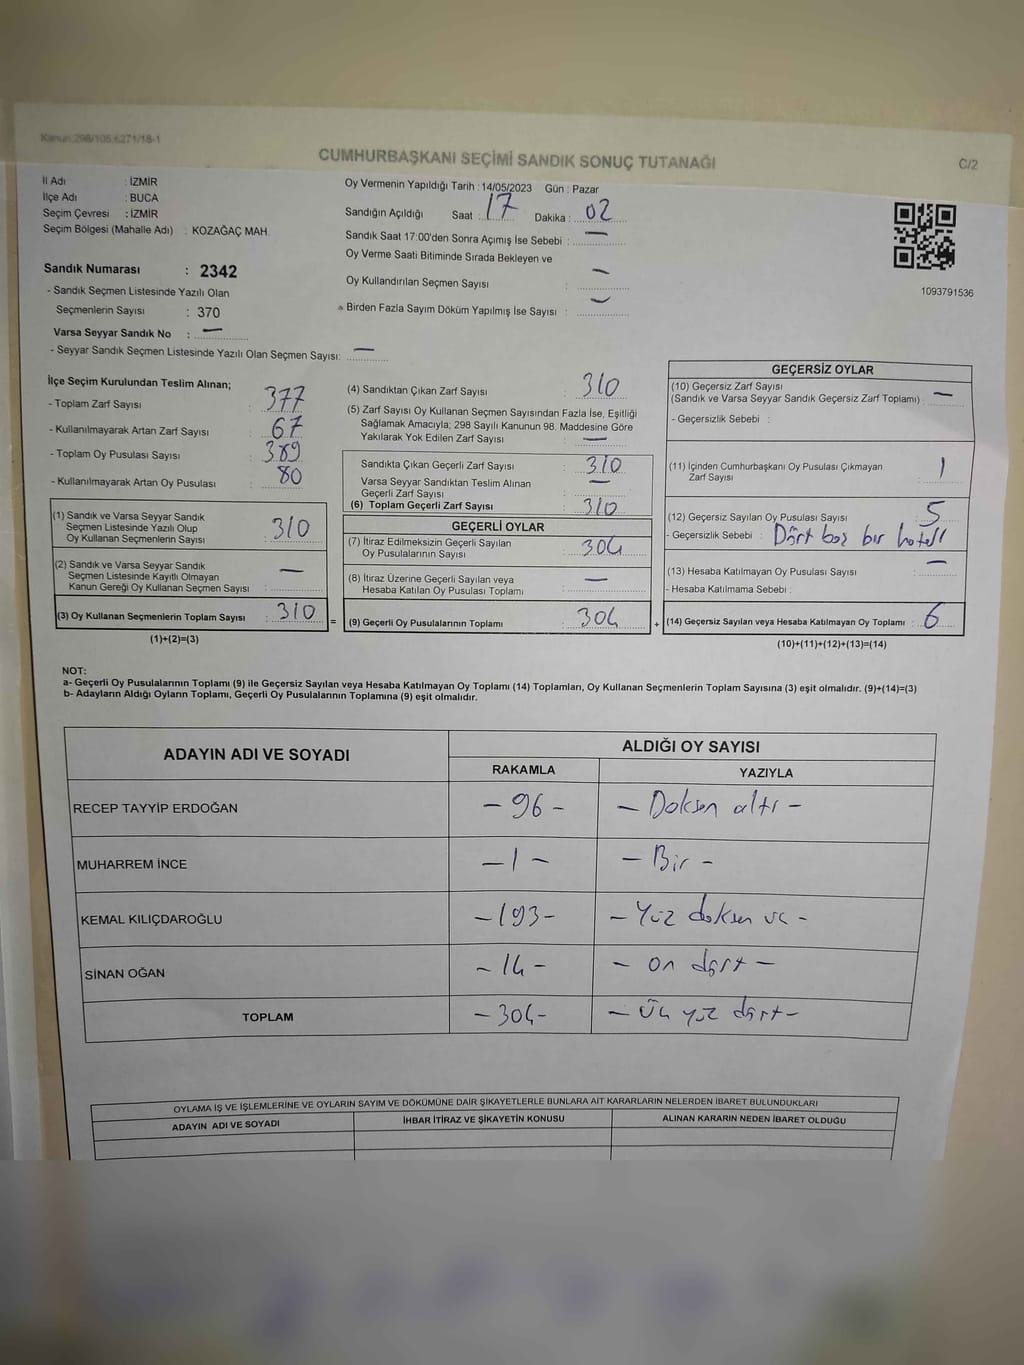 Kanun:298/105;6271/18-1
CUMHURBAŞKANI SEÇİMİ SANDIK SONUÇ TUTANAĞI
C/2
İl Adı : İZMİR
İlçe Adı : BUCA
Seçim Çevresi : İZMİR
Seçim Bölgesi (Mahalle Adı) : KOZAĞAÇ MAH.
Sandık Numarası : 2342
- Sandık Seçmen Listesinde Yazılı Olan
Seçmenlerin Sayısı : 370
Varsa Seyyar Sandık No : —
- Seyyar Sandık Seçmen Listesinde Yazılı Olan Seçmen Sayısı: —
Oy Vermenin Yapıldığı Tarih : 14/05/2023 Gün : Pazar
Sandığın Açıldığı Saat : 17 Dakika : 02
Sandık Saat 17:00'den Sonra Açımış İse Sebebi : —
Oy Verme Saati Bitiminde Sırada Bekleyen ve
Oy Kullandırılan Seçmen Sayısı : —
- Birden Fazla Sayım Döküm Yapılmış İse Sayısı : —
1093791536
İlçe Seçim Kurulundan Teslim Alınan;
- Toplam Zarf Sayısı : 377
- Kullanılmayarak Artan Zarf Sayısı : 67
- Toplam Oy Pusulası Sayısı : 389
- Kullanılmayarak Artan Oy Pusulası : 80
(1) Sandık ve Varsa Seyyar Sandık
Seçmen Listesinde Yazılı Olup
Oy Kullanan Seçmenlerin Sayısı : 310
(2) Sandık ve Varsa Seyyar Sandık
Seçmen Listesinde Kayıtlı Olmayan
Kanun Gereği Oy Kullanan Seçmen Sayısı : —
(3) Oy Kullanan Seçmenlerin Toplam Sayısı : 310
(1)+(2)=(3)
=
(4) Sandıktan Çıkan Zarf Sayısı : 310
(5) Zarf Sayısı Oy Kullanan Seçmen Sayısından Fazla İse, Eşitliği
Sağlamak Amacıyla; 298 Sayılı Kanunun 98. Maddesine Göre
Yakılarak Yok Edilen Zarf Sayısı : —
Sandıkta Çıkan Geçerli Zarf Sayısı : 310
Varsa Seyyar Sandıktan Teslim Alınan
Geçerli Zarf Sayısı : —
(6) Toplam Geçerli Zarf Sayısı : 310
GEÇERLİ OYLAR
(7) İtiraz Edilmeksizin Geçerli Sayılan
Oy Pusulalarının Sayısı : 304
(8) İtiraz Üzerine Geçerli Sayılan veya
Hesaba Katılan Oy Pusulası Toplamı : —
(9) Geçerli Oy Pusulalarının Toplamı : 304
+
GEÇERSİZ OYLAR
(10) Geçersiz Zarf Sayısı
(Sandık ve Varsa Seyyar Sandık Geçersiz Zarf Toplamı) : —
- Geçersizlik Sebebi :
(11) İçinden Cumhurbaşkanı Oy Pusulası Çıkmayan
Zarf Sayısı : 1
(12) Geçersiz Sayılan Oy Pusulası Sayısı : 5
- Geçersizlik Sebebi : Dört boş bir hatalı
(13) Hesaba Katılmayan Oy Pusulası Sayısı : —
- Hesaba Katılmama Sebebi :
(14) Geçersiz Sayılan veya Hesaba Katılmayan Oy Toplamı : 6
(10)+(11)+(12)+(13)=(14)
NOT:
a- Geçerli Oy Pusulalarının Toplamı (9) ile Geçersiz Sayılan veya Hesaba Katılmayan Oy Toplamı (14) Toplamları, Oy Kullanan Seçmenlerin Toplam Sayısına (3) eşit olmalıdır. (9)+(14)=(3)
b- Adayların Aldığı Oyların Toplamı, Geçerli Oy Pusulalarının Toplamına (9) eşit olmalıdır.
ADAYIN ADI VE SOYADI ALDIĞI OY SAYISI
RAKAMLA YAZIYLA
RECEP TAYYİP ERDOĞAN - 96 - - Doksan altı -
MUHARREM İNCE - 1 - - Bir -
KEMAL KILIÇDAROĞLU - 193 - - Yüz doksan üç -
SİNAN OĞAN - 14 - - on dört -
TOPLAM - 304 - - Üç yüz dört -
OYLAMA İŞ VE İŞLEMLERİNE VE OYLARIN SAYIM VE DÖKÜMÜNE DAİR ŞİKAYETLERLE BUNLARA AİT KARARLARIN NELERDEN İBARET BULUNDUKLARI
ADAYIN ADI VE SOYADI İHBAR İTİRAZ VE ŞİKAYETİN KONUSU ALINAN KARARIN NEDEN İBARET OLDUĞU